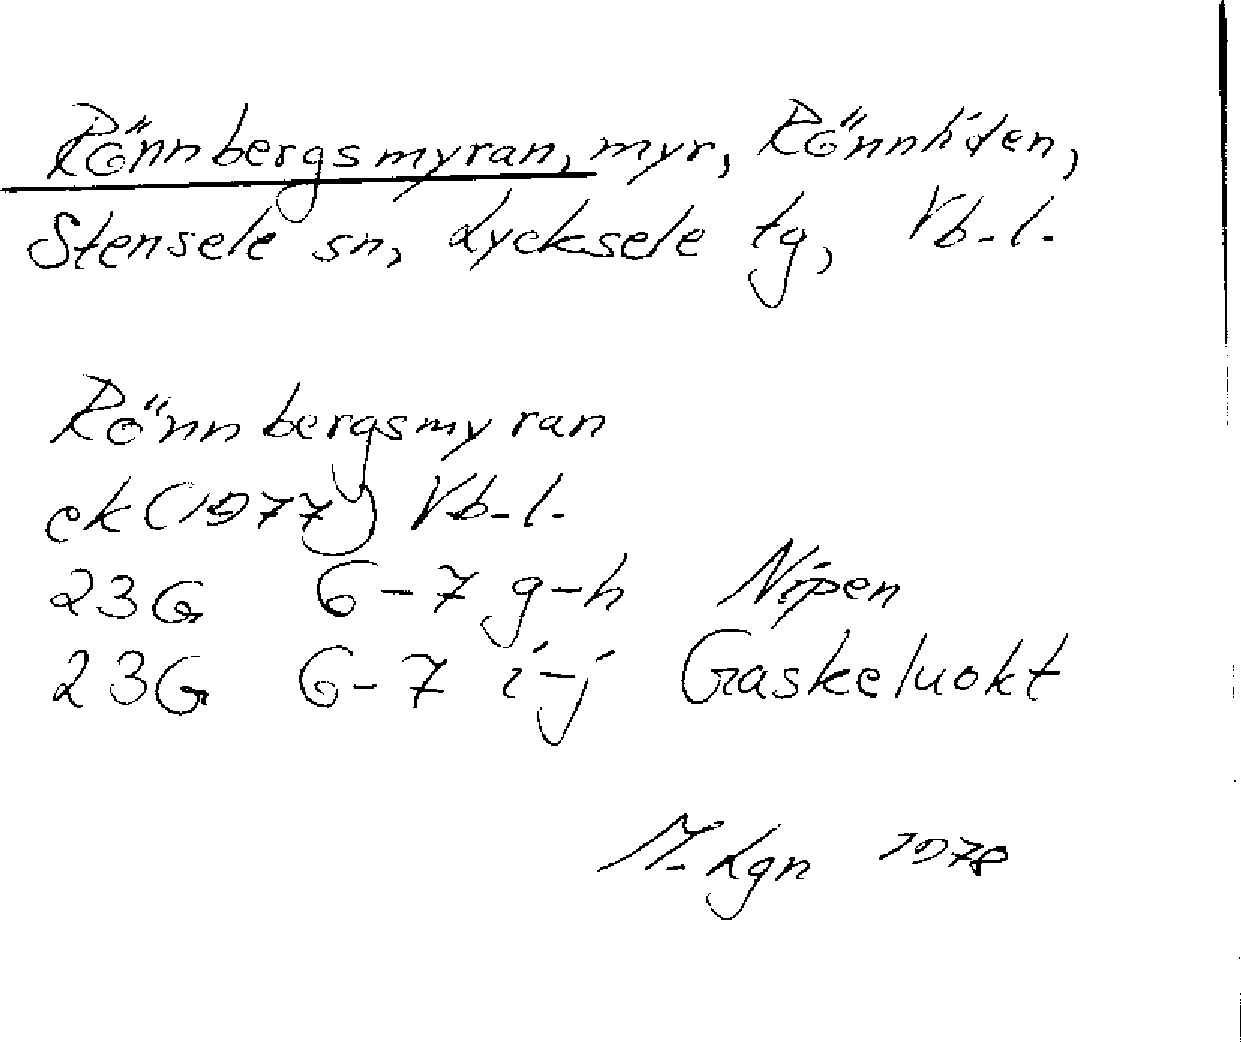 Rönnbergsmyran, myr, Rönnliden,
Stensele sn, Lycksele tg, Vb-l.
Rönnbergsmyran
ek (1977) Vb-l.
23G 6-7 g-h Nipen
23G 6-7 i-j Gaskeluokt
M. Lgn 1978